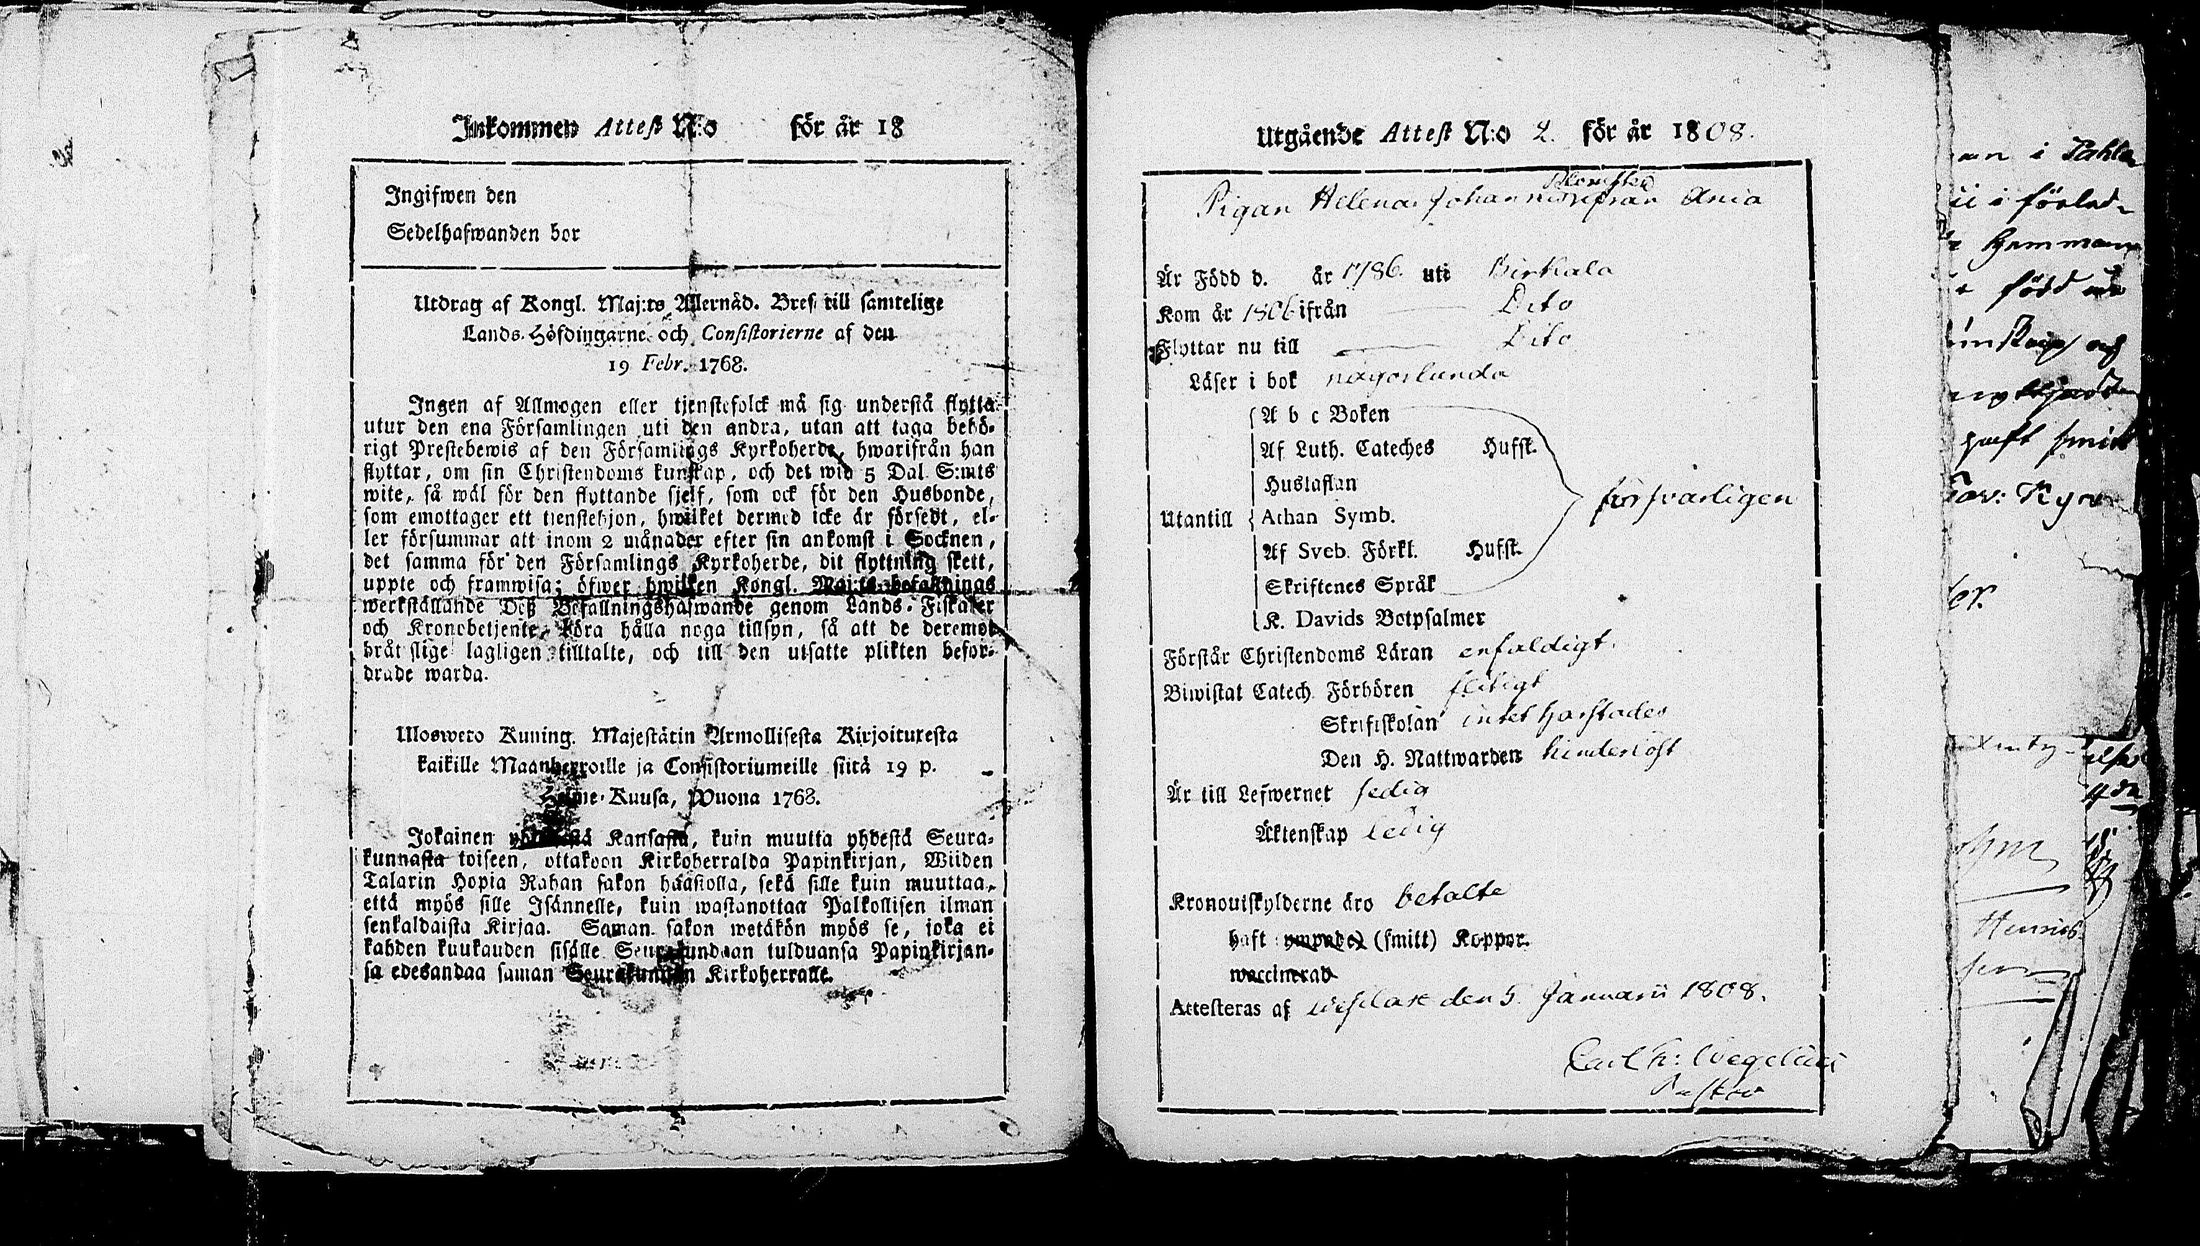 Inkommen Attest N:o för år 18
Ingifwen den
Sedelhafwanden bor
Utdrag af Kongl. Maj:ts Allernåd. Bref till samtelige
Lands-Höfdingarne och Consistorierne af den
19 Febr. 1768.
Ingen af Allmogen eller tjenstefolck må sig understå flytta
utur den ena Församlingen uti den andra, utan att taga behö-
rigt Prestebewis af den Församlings Kyrkoherde, hwarifrån han
flyttar, om sin Christendoms kunskap, och det wid 5 Dal. S:mts
wite, så wäl för den flyttande sjelf, som ock för den Husbonde,
som emottager ett tjenstehjon, hwilket dermed icke är försedt, el-
ler försummar att inom 2 månader efter sin ankomst i Socknen,
det samma för den Församlings Kyrkoherde, dit flyttning skett,
uppte och framwisa; öfwer hwilken Kongl. Maj:ts befallnings
werkställande Deß Befallningshafwande genom Lands-Fiskaler
och Kronobetjente böra hålla noga tillsyn, så att de deremot
bråtslige lagligen tilltalte, och till den utsatte plikten befor-
drade warda.
Uloswето Kuning. Majestätin Armollisesta Kirjoituxesta
kaikille Maanherroille ja Consistoriumeille siitä 19 p.
Helme-Kuusa, Wuona 1768.
Jokainen yhteisestä Kansasta, kuin muutta yhdestä Seura-
kunnasta toiseen, ottakoon Kirkoherralda Papinkirjan, Wiiden
Talarin Hopia Rahan sakon haastolla, sekä sille kuin muuttaa,
että myös sille Isännelle, kuin wastanottaa Palkollisen ilman
senkaldaista Kirjaa. Saman sakon wetäkön myös se, joka ei
kahden kuukauden sisälle Seurakundaan tulduansa Papinkirjan-
sa edesandaa saman Seurakunnan Kirkoherralle.
Utgående Attest N:o 2. för år 1808.
Pigan Helena Johann ifrån Ania
Är Född d. år 1786. uti Birkala
Kom år 1806 ifrån Dito
Flyttar nu till Dito
Läser i bok någorlunda
A b c Boken
Af Luth. Cateches Hufst.
Hustaflan
Utantill Athan Symb. försvarligen
Af Sveb. Förkl. Hufst.
Skriftenes Språk
K. Davids Botpsalmer
Förstår Christendoms Läran enfaldigt.
Biwistat Catech. Förhören flitigt
Skriftskolan intet
Den H. Nattwarden hinderlöst
Är till Lefwernet sedig
Äktenskap ledig
Kronoutskylderne äro betalte
haft ympade) (smitt) Koppor.
waccinerad
Attesteras af Wesilax den 5. Januarii 1808.
Carl H: Wegelius
Pastor